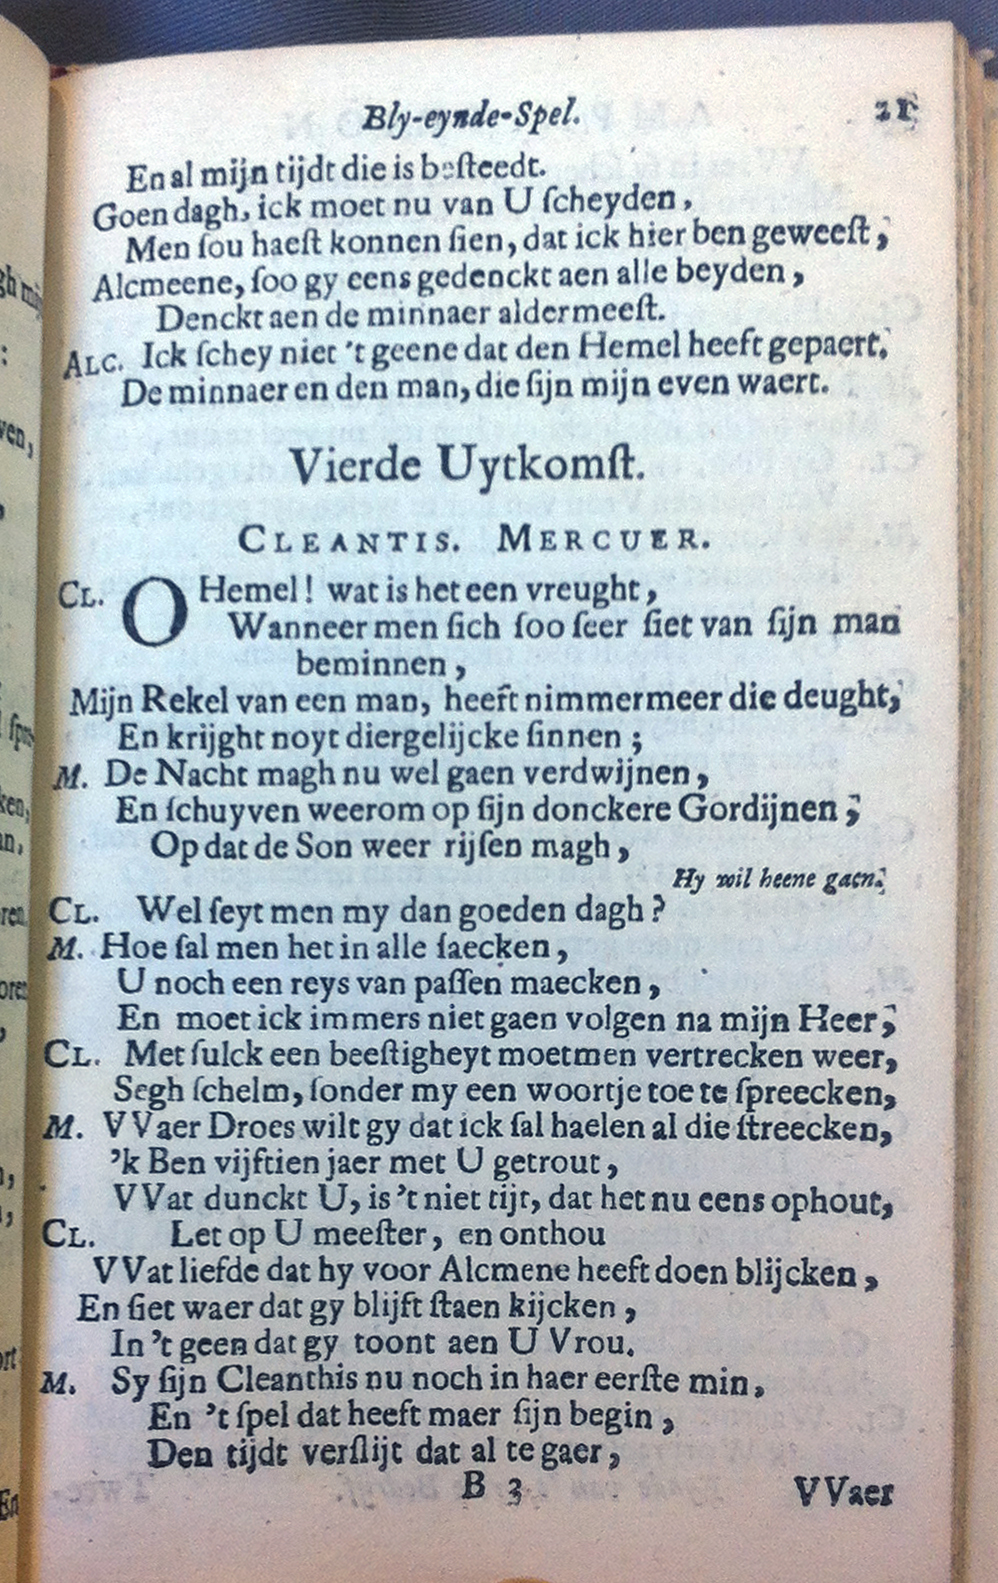 Bly-eynde-Spel. 21
En al mijn tijdt die is beſteedt.
Goen dagh, ick moet nu van U ſcheyden,
Men ſou haeſt konnen ſien, dat ick hier ben geweeſt;
Alcmeene, ſoo gy eens gedenckt aen alle beyden,
Denckt aen de minnaer aldermeeſt.
ALC. Ick ſchey niet 't geene dat den Hemel heeft gepaert.
De minnaer en den man, die ſijn mijn even waert.
Vierde Uytkomſt.
CLEANTIS. MERCUER.
CL. O Hemel! wat is het een vreught,
Wanneer men ſich ſoo ſeer ſiet van ſijn man
beminnen,
Mijn Rekel van een man, heeft nimmermeer die deught,
En krijght noyt diergelijcke ſinnen;
M. De Nacht magh nu wel gaen verdwijnen,
En ſchuyven weerom op ſijn donckere Gordijnen;
Op dat de Son weer rijſen magh,
Hy wil heene gaen.
CL. Wel ſeyt men my dan goeden dagh?
M. Hoe ſal men het in alle ſaecken,
U noch een reys van paſſen maecken,
En moet ick immers niet gaen volgen na mijn Heer;
CL. Met ſulck een beeſtigheyt moet men vertrecken weer,
Segh ſchelm, ſonder my een woortje toe te ſpreecken,
M. VVaer Droes wilt gy dat ick ſal haelen al die ſtreecken,
'k Ben vijftien jaer met U getrout,
VVat dunckt U, is 't niet tijt, dat het nu eens ophout,
CL. Let op U meeſter, en onthou
VVat liefde dat hy voor Alcmene heeft doen blijcken,
En ſiet waer dat gy blijft ſtaen kijcken,
In 't geen dat gy toont aen U Vrou.
M. Sy ſijn Cleanthis nu noch in haer eerſte min,
En 't ſpel dat heeft maer ſijn begin,
Den tijdt verſlijt dat al te gaer,
B 3 VVaer